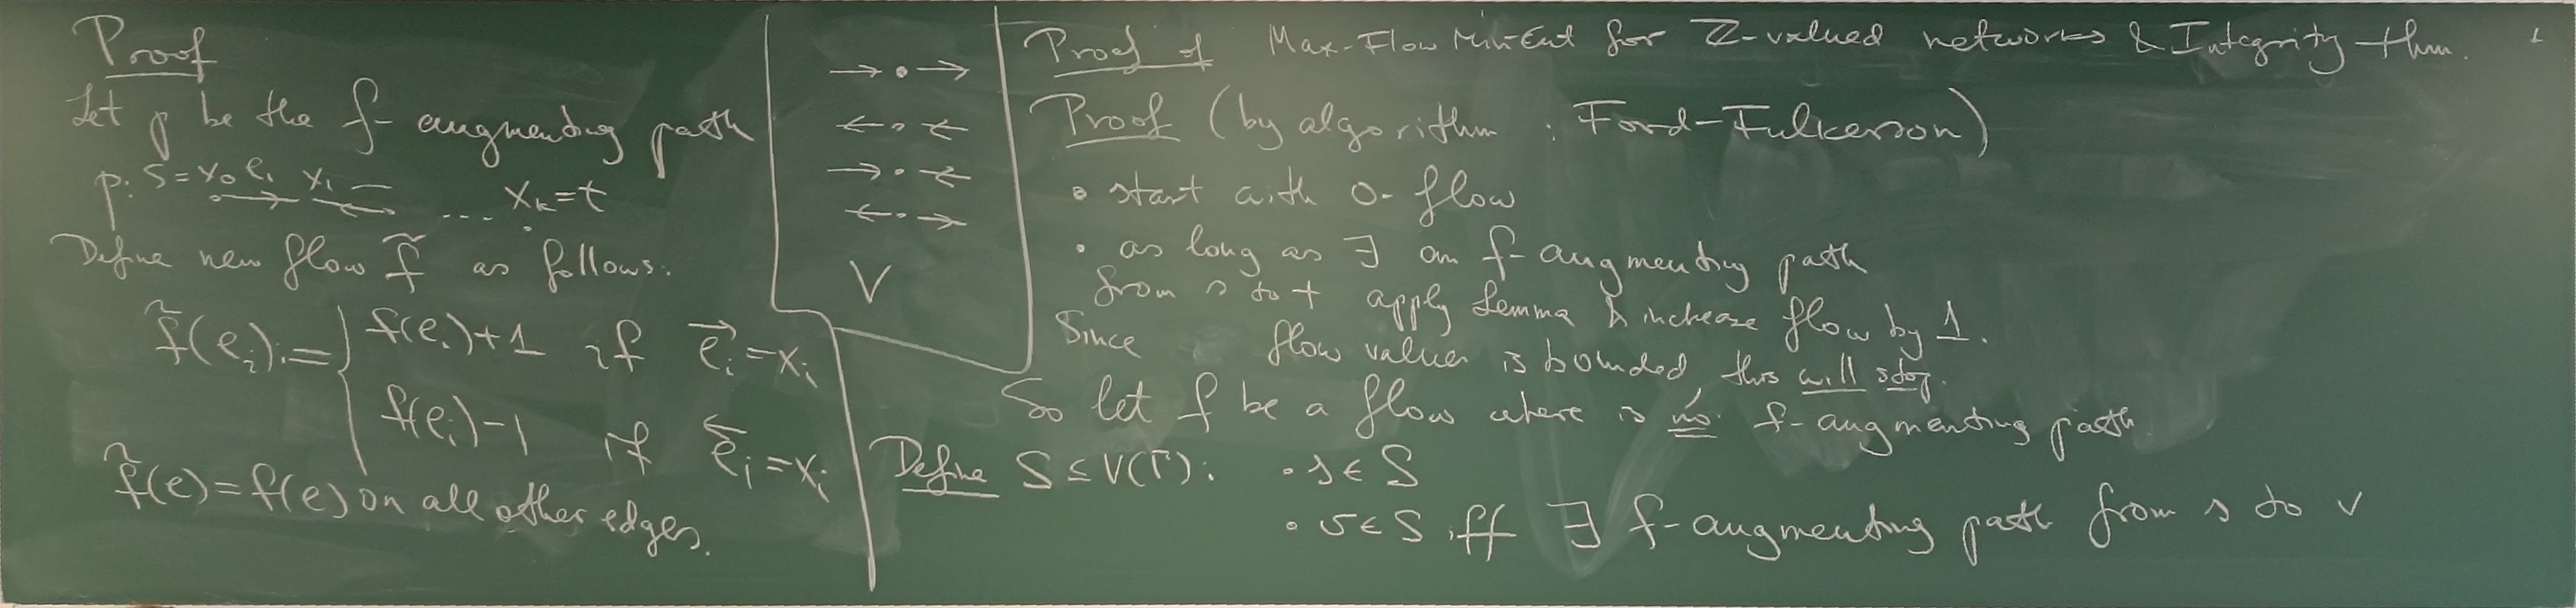 Proof
Let p be the f-augmenting path
p: S=x₀ e₁ x₁ .... xₖ=t
Define new flow f̃ as follows:
f̃(eᵢ):= { f(eᵢ)+1 if e⃗ᵢ=xᵢ
f(eᵢ)-1 if e⃖ᵢ=xᵢ
f̃(e)=f(e) on all other edges.
→•→
←•←
→•←
←•→
V
Proof of Max-Flow Min-Cut for Z-valued networks & Integrity thm.
Proof (by algorithm: Ford-Fulkerson)
• start with 0-flow
• as long as ∃ an f-augmenting path
from s to t apply Lemma & increase flow by 1.
Since flow values is bounded, this will stop.
So let f be a flow where is no f-augmenting path.
Define S⊆V(Γ): • s∈S
• v∈S iff ∃ f-augmenting path from s to v